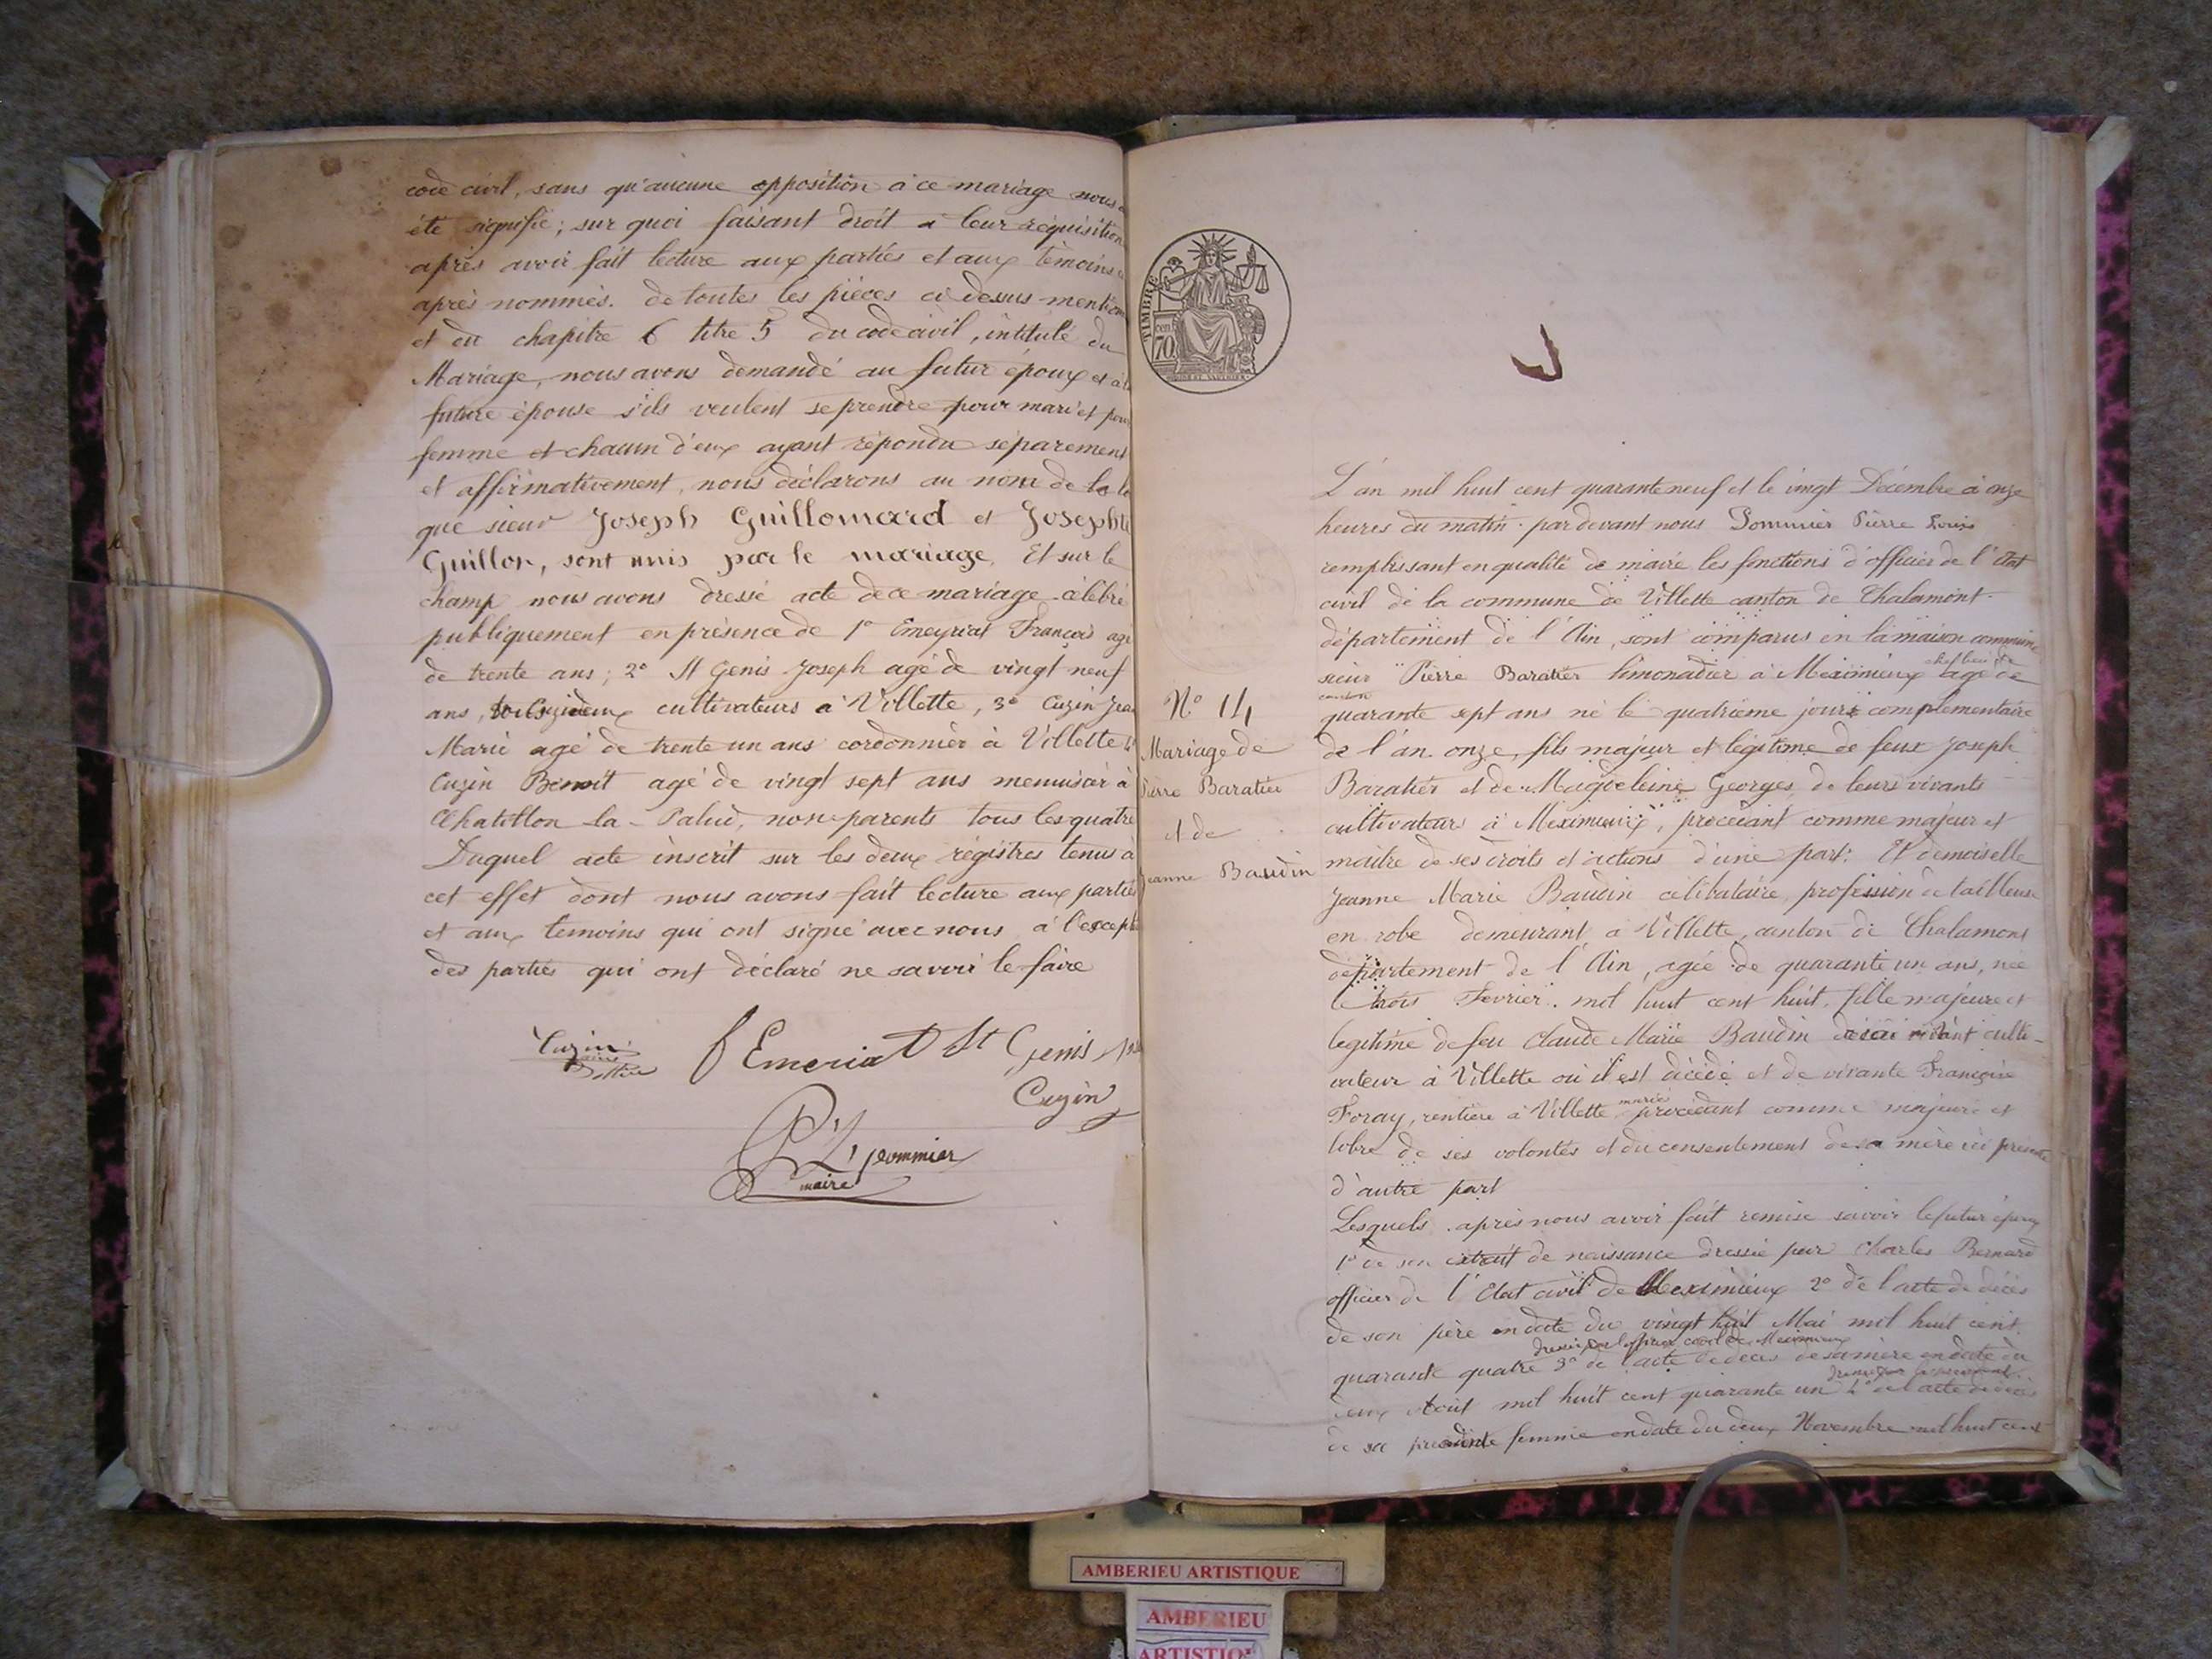 code civil, sans qu'aucune opposition à ce mariage nous
été signifié; sur quoi faisant droit à leur réquisition
après avoir fait lecture aux parties et aux témoins
après nommés. de toutes les pièces ci dessus
et du chapitre 6 titre 5 du code civil, intitulé du
Mariage, nous avons demandé au futur époux et à
future épouse s'ils veulent se prendre pour mari et
femme et chacun d'eux ayant répondu séparement
et affirmativement, nous déclarons au nom de la
que sieur Joseph Guillomard et
Guillon, sont unis par le mariage. Et sur le
champ nous avons dressé acte de ce mariage célébré
publiquement en présence de 1° Emeyriat François agé
de trente ans; 2° St Genis Joseph agé de vingt neuf
ans, cultivateurs à Villette, 3° Cuzin
Marie agé de trente un ans cordonnier à Villette
Cuzin Benoit agé de vingt sept ans menuisier à
Chatillon la Palud, non parents tous les quatre
Duquel acte inscrit sur les deux régistres tenus à
cet effet dont nous avons fait lecture aux parties
et aux temoins qui ont signé avec nous à
des parties qui ont déclaré ne savoir le faire
Cuzin
f Emeriat St Genis
Cuzin
P L pommier
maire
TIMBRE
cent
70
N° 14
Mariage de
Pierre Baratier
et de
Jeanne Baudin
L'an mil huit cent quarante neuf et le vingt Décembre à onze
heures du matin. par devant nous Pommier Pierre Louis
remplissant en qualité de maire les fonctions d'officier de l'état
civil de la commune de Villette canton de Chalamont.
département de l'Ain, sont comparus en la maison commune
chef lieu de
sieur Pierre Baratier limonadier à Meximieux agé de
canton
quarante sept ans né le quatrième jour complementaire
de l'an onze, fils majeur et légitime de feux Joseph
Baratier et de Magdeleine Georges de leurs vivants
cultivateurs à Meximieux, procédant comme majeur et
maitre de ses droits et actions d'une part: Et demoiselle
Jeanne Marie Baudin célibataire, profession de tailleuse
en robe demeurant à Villette, canton de Chalamont
département de l'Ain, agée de quarante un ans, née
le trois Fevrier. mil huit cent huit, fille majeure et
legitime de feu Claude Marie Baudin de son vivant culti-
vateur à Villette où il est décédé et de vivante Françoise
Foray, rentière à Villette procédant comme majeure et
libre de ses volontés et du consentement de sa mère ici présente
d'autre part
Lesquels après nous avoir fait remise savoir le futur époux
1° de son extrait de naissance dressé par Charles Bernard
officier de l'Etat civil de Meximieux 2° de l'acte de décès
de son père en date du vingt huit Mai mil huit cent
dressé par l'officier civil de Meximieux
quarante quatre 3° de l'acte de décès de sa mère en date du
deux Août mil huit cent quarante un 4° de l'acte de décès
de sa précédente femme en date du deux Novembre mil huit cent
AMBERIEU ARTISTIQUE
AMBERIEU
ARTISTIQUE